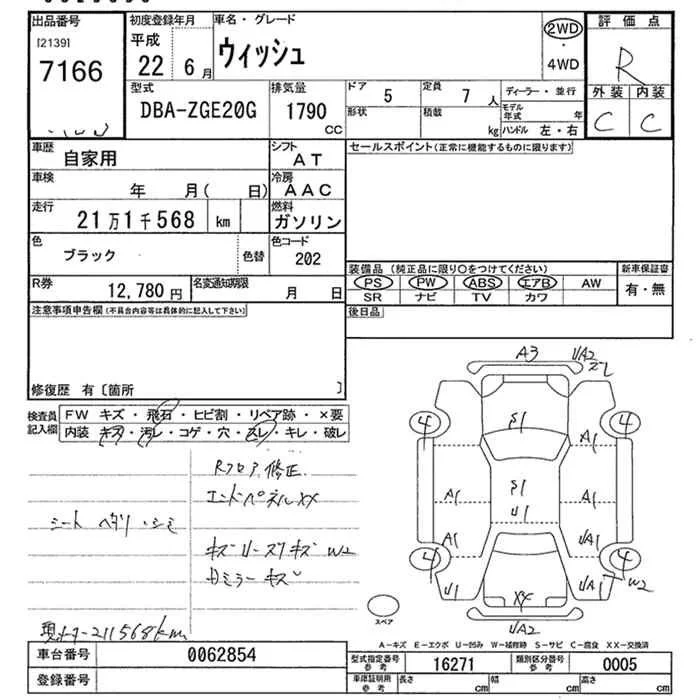 出品番号
[2139]
7166
初度登録年月
平成
22 6月
車名・グレード
ウィッシュ
2WD
・
4WD
評価点
R
外装 内装
C C
型式
DBA-ZGE20G
排気量
1790
CC
ドア
5
定員
7人
形状
積載
kg
ディーラー・並行
モデル年式 年
ハンドル 左・右
車歴
自家用
シフト
AT
車検
年 月( 日)
冷房
AAC
走行
21万1千568 km
燃料
ガソリン
色
ブラック
色替
色コード
202
R券
12,780円
名変通知期限
月 日
セールスポイント(正常に機能するものに限ります)
装備品(純正品に限り○をつけてください)
PS PW ABS エアB AW
SR ナビ TV カワ
新車保証書
有・無
後日品
注意事項申告欄(不具合内容等は具体的に記入して下さい)
修復歴 有〔箇所 〕
検査員記入欄
FW キズ・飛石・ヒビ割・リペア跡・×要
内装 キズ・汚レ・コゲ・穴・スレ・キレ・破レ
Rフロア修正
エンドパネルXX
シート ヘタリ・シミ
キズリースリキズ W2
ミラーキズ
現メーター211568km
A3
UA2
4 4
S1
A1
S1
U1
A1 A1
A1 UA1
4 4
U1 UA1 W2
XX
UA2
スペア
A-キズ E-エクボ U-凹み W-補修跡 S-サビ C-腐食 XX-交換済
車台番号
0062854
登録番号
型式指定番号
参考
16271
類別区分番号
参考
0005
車庫証明用
参考
長さ cm
幅 cm
高さ cm